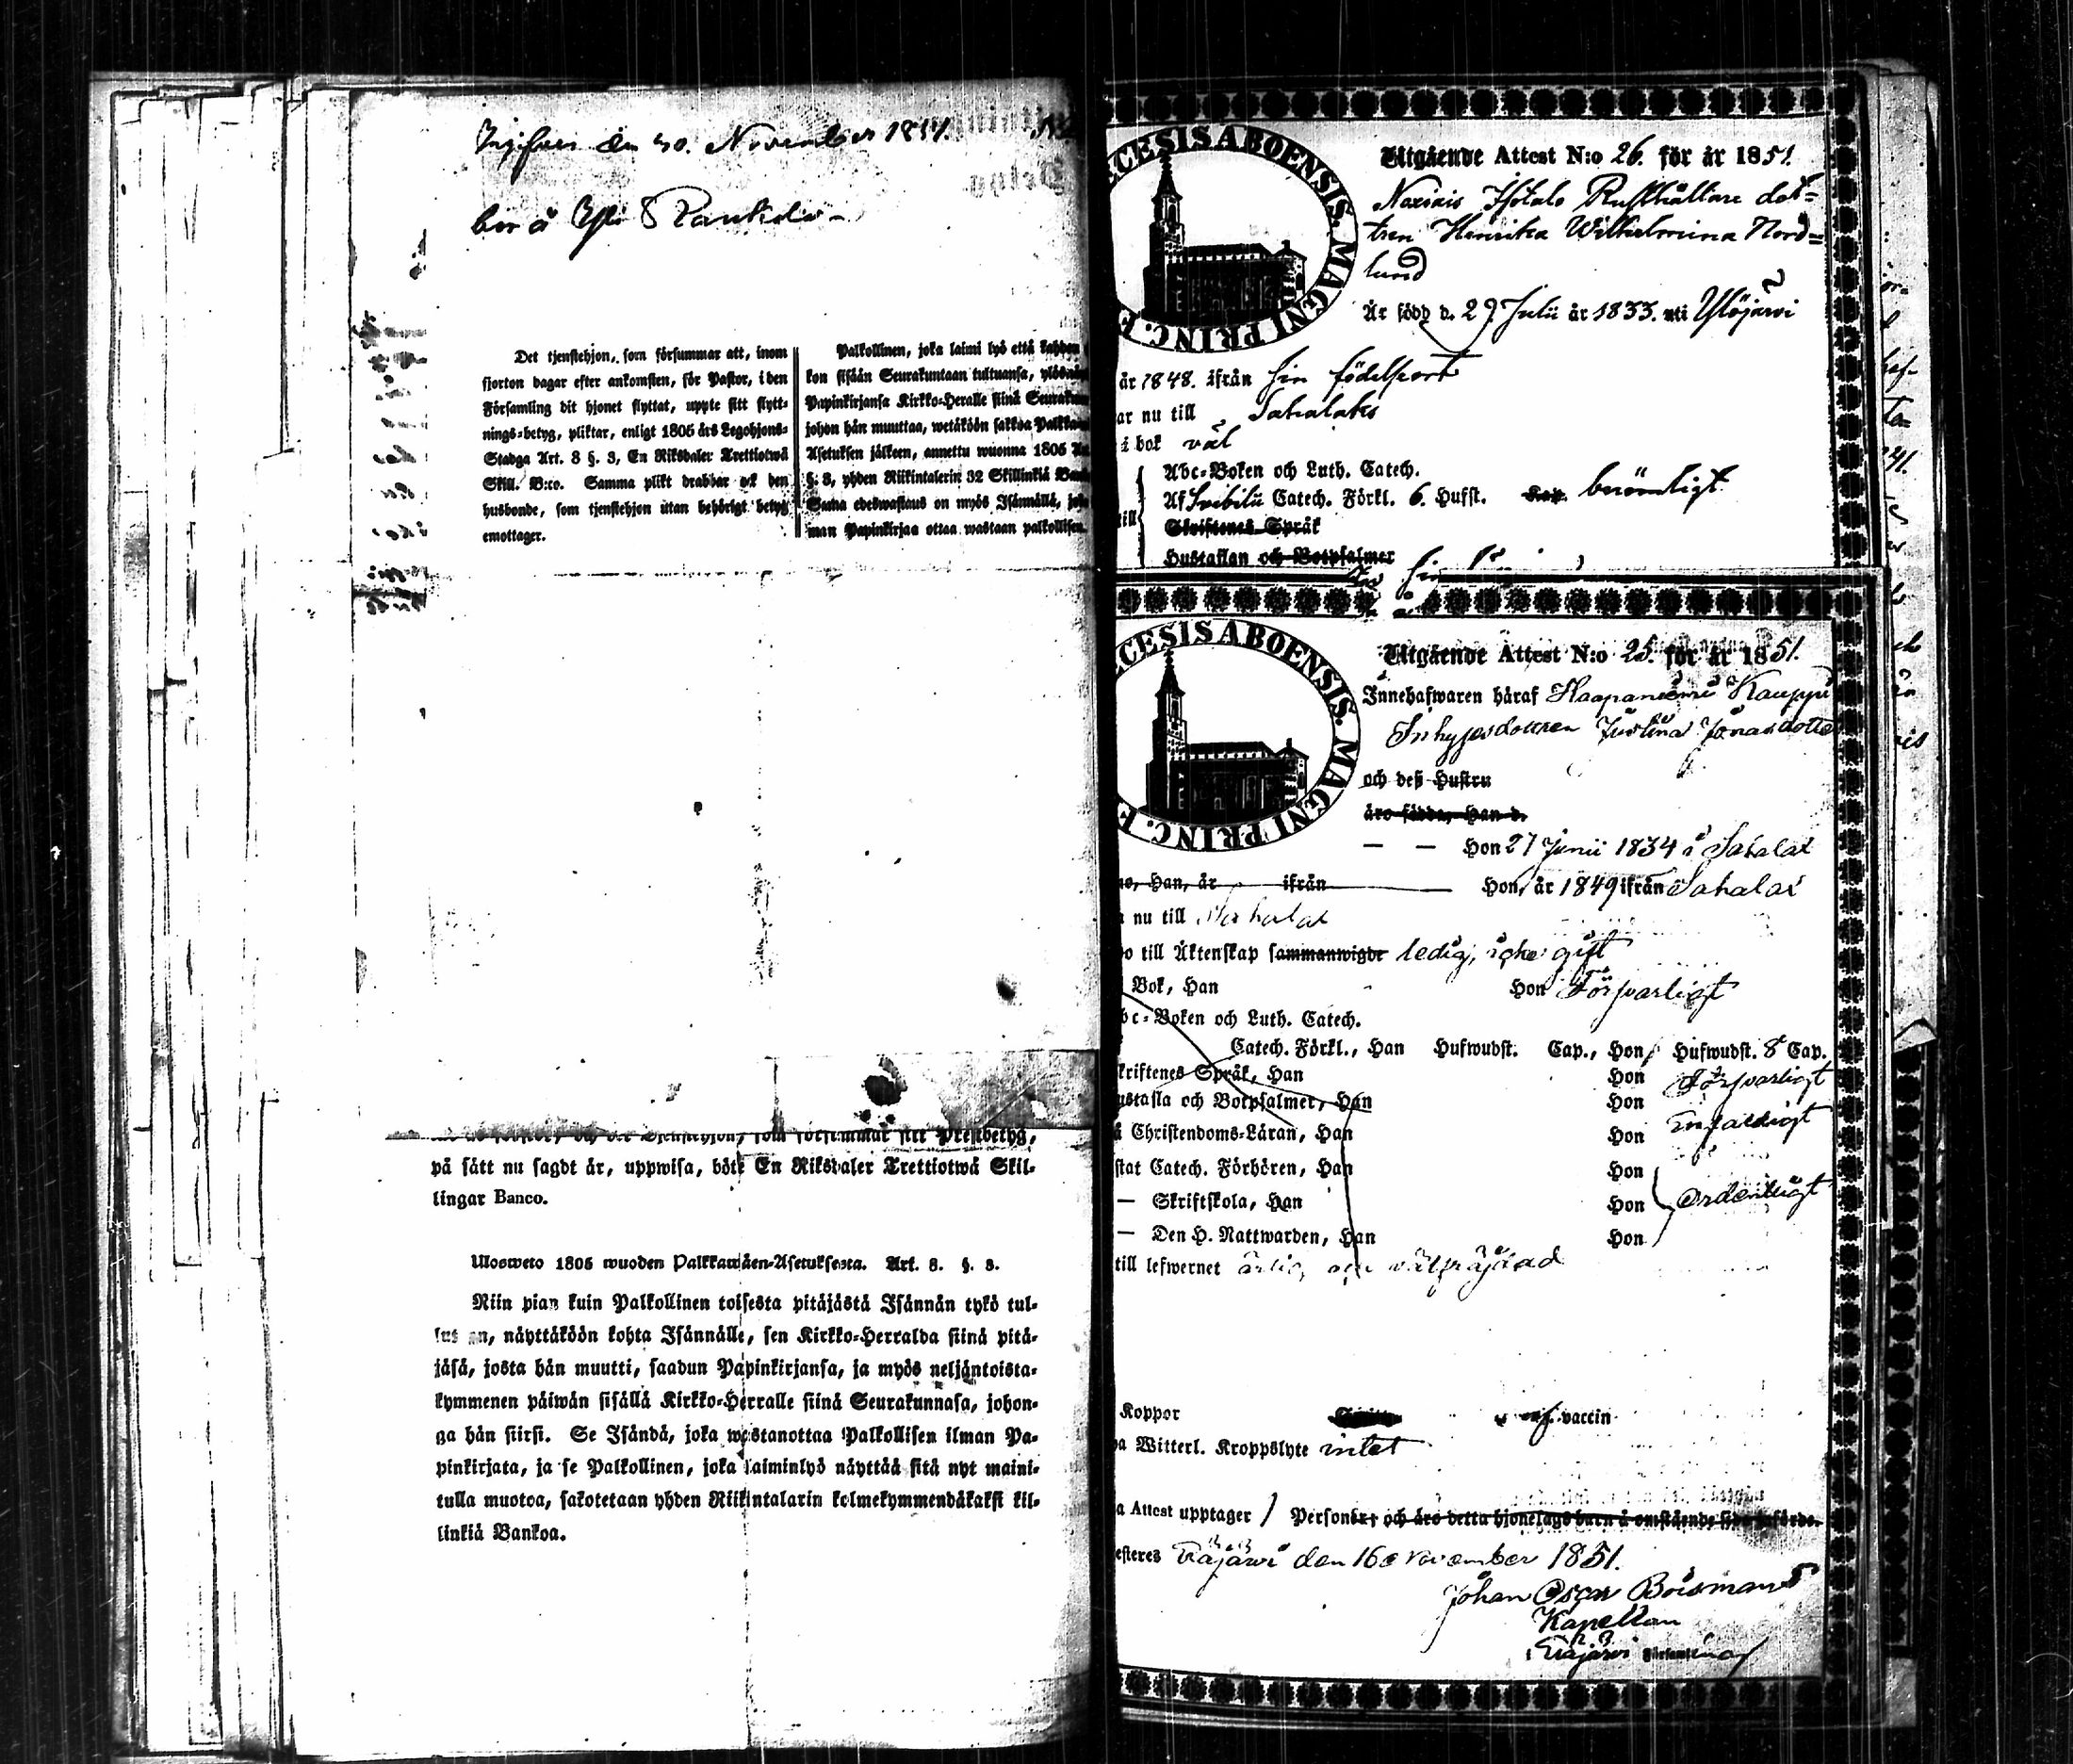 den 30. November 1851.
bor å
Det tjenstehjon, som försummar att, inom
fjorton dagar efter ankomsten, för Pastor, i den
Församling dit hjonet flyttat, uppte sitt flytt-
nings-betyg, pliktar, enligt 1805 års Legohjons-
Stadga Art. 8 §. 3, En Riksdaler Trettiotwå
Skill. B:co. Samma plikt drabbar ock den
husbonde, som tjenstehjon utan behörigt betyg
emottager.
Palkollinen, joka laimi lyö että kahden
kon sisään Seurakuntaan tultuansa, ylösnä
Papinkirjansa Kirkko-Heralle siinä Seuraku
johon hän muuttaa, wetäköön sakkoa Palkka
Asetuksen jälkeen, annettu wuonna 1805
§: 3, yhden Riikintalerin 32 Skillinkiä Ban
Sama edeswastaus on myös Isännällä, jo
man Papinkirjaa ottaa wastaan palkollisen.
som försummar sitt Prestbetyg,
på sätt nu sagdt är, uppwisa, böte En Riksdaler Trettiotwå Skil-
lingar Banco.
Ulosweto 1805 wuoden Palkkawäen-Asetuksesta. Art. 8. §. 3.
Niin pian kuin Palkollinen toisesta pitäjästä Isännän tykö tul-
lut on, näyttäköön kohta Isännälle, sen Kirkko-Herralda siinä pitä-
jäsä, josta hän muutti, saadun Papinkirjansa, ja myös neljäntoista-
kymmenen päiwän sisällä Kirkko-Herralle siinä Seurakunnasa, johon-
ga hän siirsi. Se Isändä, joka wastanottaa Palkollisen ilman Pa-
pinkirjata, ja se Palkollinen, joka laiminlyö näyttää sitä nyt maini-
tulla muotoa, sakotetaan yhden Riikintalarin kolmekymmendäkaksi kil-
linkiä Bankoa.
CESIS ABOENSIS. MAGNI PRINC. F
Utgående Attest N:o 26. för år 1851.
Isotalo Rusthållare dot-
tren Henrika Wilhelmina Nord-
lund
Är född d. 29 Julii år 1833. uti Ylöjärvi
år 1848. ifrån sin födelseort
ar nu till Sahalaks
i bok väl
Abc-Boken och Luth. Catech.
Af Svebilii Catech. Förkl. 6. Hufst. berömligt
till
Skriftenes Språk
Hustaflan och Botpsalmer
CESIS ABOENSIS. MAGNI PRINC. F
Utgående Attest N:o 25. för år 1851.
Innehafwaren häraf Haapaniemi Kauppi
Inhysesdottren Justina Jonasdotter
och deß Hustru
äro födda, Han d.
— — Hon 27 Junii 1834 i Sahalax
no, Han, år ifrån Hon, år 1849 ifrån Sahalax
nu till Sahalax
till Äktenskap sammanwigde ledig, icke gift
Bok, Han Hon Försvarligt
bc-Boken och Luth. Catech.
Catech. Förkl., Han Hufwudst. Cap., Hon Hufwudst. 8 Cap.
kriftenes Språk, Han Hon Försvarligt
ustafla och Botpsalmer, Han Hon
Christendoms-Läran, Han Hon Enfaldigt
stat Catech. Förhören, Han Hon
— Skriftskola, Han Hon ordentligt
— Den H. Nattwarden, Han Hon
till lefwernet ärlig och välfräjdad
Koppor vaccin
a Witterl. Kroppslyte intet
a Attest upptager 1 Personer, och äro detta hjonelags barn å omstående sida införde.
esteres Eräjärvi den 16 November 1851.
Johan Oscar Boisman
Kapellan
i Eräjärvi Församling